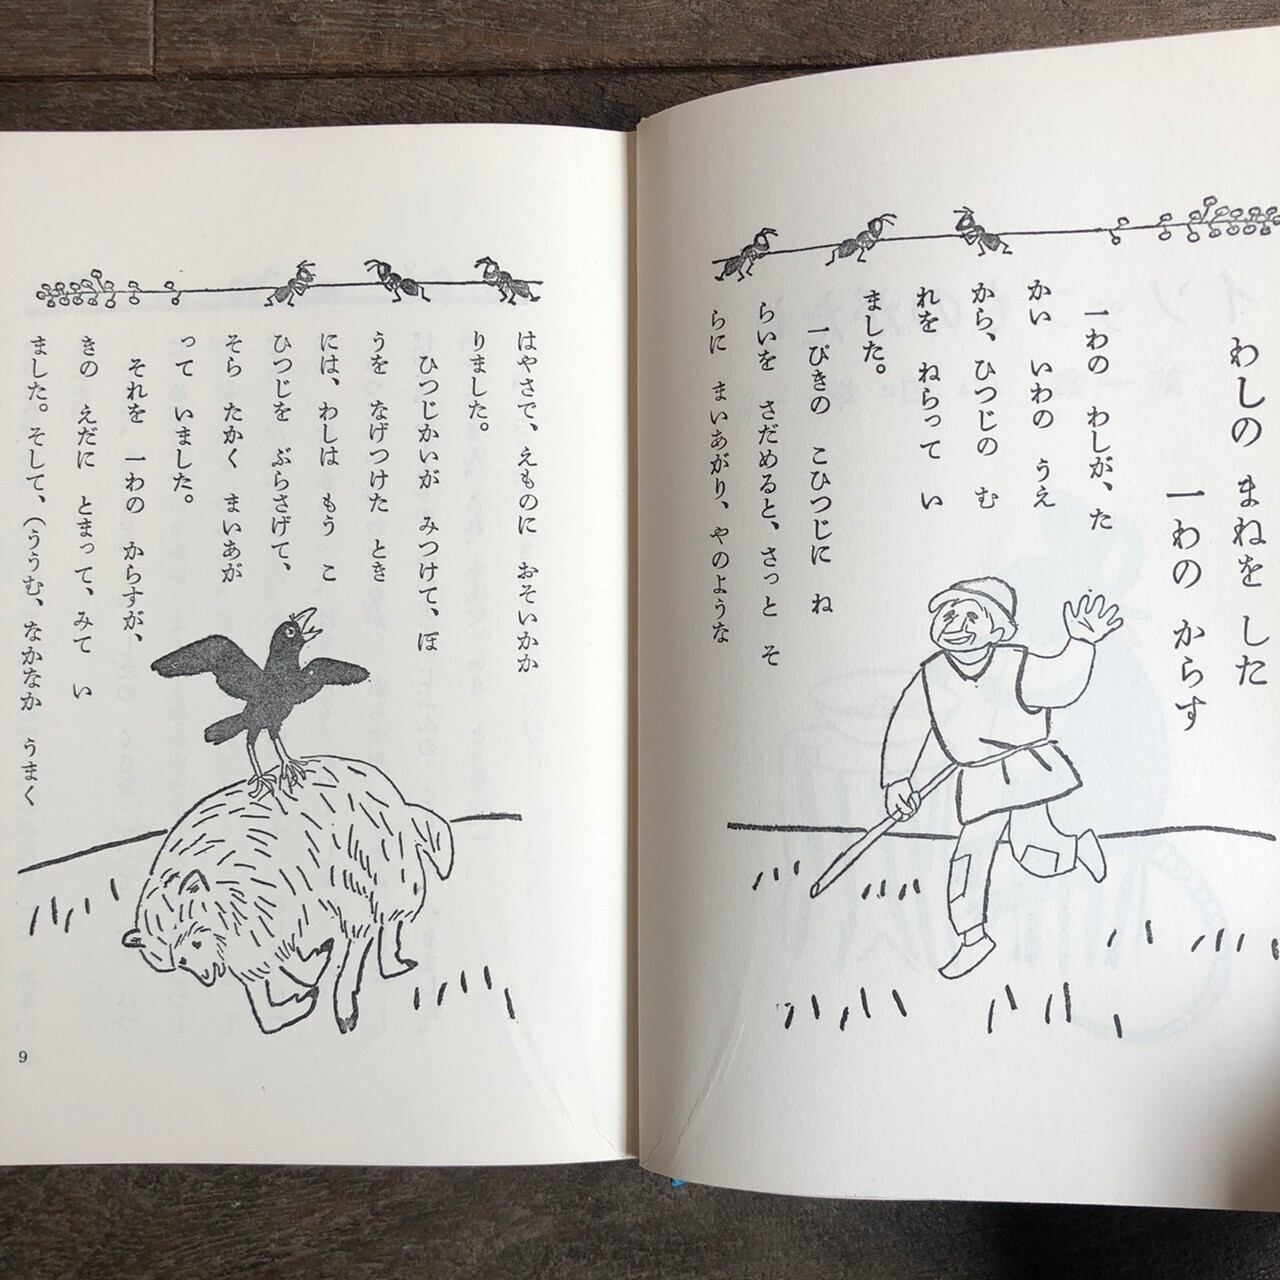 わしの まねを した
一わの からす
一わの わしが、た
かい いわの うえ
から、ひつじの む
れを ねらって い
ました。
一ぴきの こひつじに ね
らいを さだめると、さっと そ
らに まいあがり、やのような
はやさで、えものに おそいかか
りました。
ひつじかいが みつけて、ぼ
うを なげつけた とき
には、わしは もう こ
ひつじを ぶらさげて、
そら たかく まいあが
って いました。
それを 一わの からすが、
きの えだに とまって、みて い
ました。そして、(ううむ、なかなか うまく
9